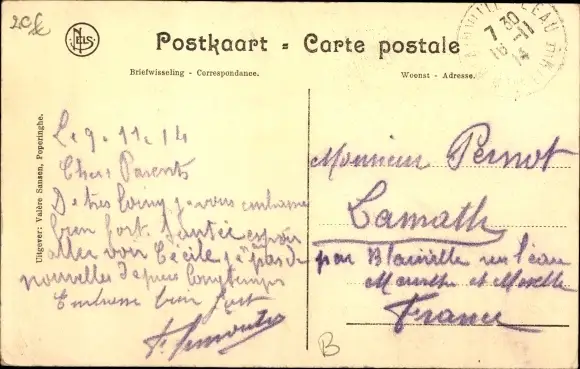 2€
NELS
Postkaart - Carte postale
Briefwisseling - Correspondance.
Woonst - Adresse.
Uitgever: Valère Sansen, Poperinghe.
7 30
16-11
14
Le 9.11.14
Chers Parents
De très loin je vous embrasse
bien fort. Santé espoir
aller voir Cécile je pas de
nouvelles depuis longtemps
Embrasse bien fort
Monsieur Pernot
Lamath
par Blainville sur l'eau
Meurthe et Moselle
France
B